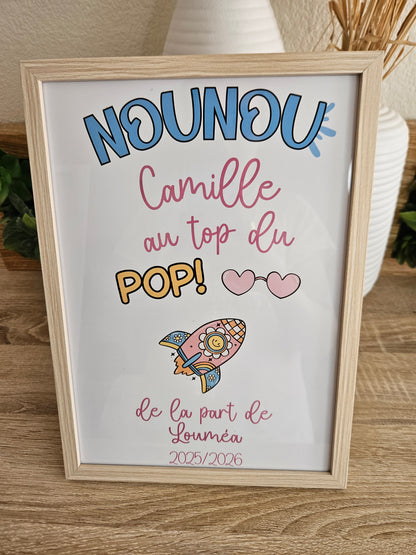 NOUNOU
Camille
au top du
POP!
de la part de
Louméa
2025/2026